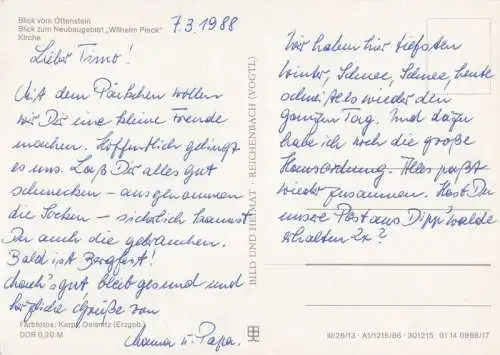 Blick vom Ottenstein
Blick zum Neubaugebiet „Wilhelm Pieck"
Kirche
7.3.1988
Lieber Timo!
Mit dem Päckchen wollen
wir Dir eine kleine Freude
machen. Hoffentlich gelingt
es uns. Laß Dir alles gut
schmecken – ausgenommen
die Socken – sicherlich kannst
Du auch die gebrauchen.
Bald ist Bergfest!
Mach's gut bleib gesund und
herzliche Grüße von
Mama u. Papa.
Farbfotos: Kempt, Oelsnitz (Erzgeb.)
DDR 0,20 M
BILD UND HEIMAT · REICHENBACH (VOGTL)
Wir haben hier tiefsten
Winter, Schnee, Schnee, heute
schneit es wieder den
ganzen Tag. Und dazu
habe ich noch die große
Hausordnung. Alles paßt
wieder zusammen. Hast Du
unsere Post aus Dipp'walde
erhalten 2x?
III/26/13 · A1/1215/86 · 301215 01 14 0966/17